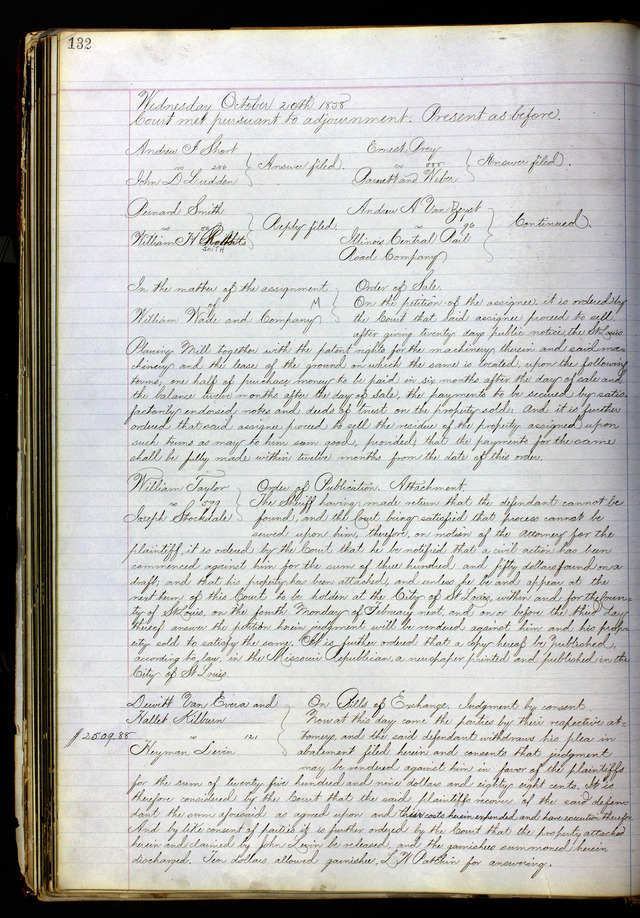 132
Wednesday October 20th 1858
Court met pursuant to adjournment. Present as before.
Andrew J Short
vs 200 Answer filed.
John D Ludden
Ernest Prey
vs 555 Answer filed.
Barnett and Weber
Bernard Smith
vs Reply filed
William H Roberts
SMITH
Andrew A Van
vs 90 Continued.
Illinois Central Rail
Road Company
In the matter of the assignment
of M
William Wade and Company
Order of Sale.
On the petition of the assignee, it is ordered by
the Court that said assignee proceed to sell
after giving twenty days public notice, the St Louis
Planing Mill together with the patent rights for the machinery therein and said ma-
chinery and the lease of the ground on which the same is located, upon the following
terms, one half of purchase money to be paid in six months after the day of sale and
the balance twelve months after the day of Sale, the payments to be secured by satis-
factorily endorsed notes and deeds of trust on the property sold. And it is further
ordered that said assignee proceed to sell the residue of the property assigned upon
such terms as may to him seem good, provided, that the payments for the same
shall be fully made within twelve months from the date of this order.
William Taylor
vs 599
Joseph Stockdale
Order of Publication. Attachment.
The Sheriff having made return that the defendant cannot be
found, and the Court being satisfied that process cannot be
served upon him, therefore, on motion of the attorney for the
plaintiff, it is ordered by the Court that he be notified that a civil action has been
commenced against him for the sum of three hundred and fifty dollars found on a
draft; and that his property has been attached, and unless he be and appear at the
next term of this Court to be holden at the City of St Louis, within and for the Coun-
ty of St Louis, on the fourth Monday of February next, and on or before the third day
thereof answer the petition herein judgment will be rendered against him and his prop-
erty sold to satisfy the same. It is further ordered that a copy hereof be published,
according to law, in the Missouri Republican, a newspaper printed and published in the
City of St Louis.
Dewitt Van Evera and
Hallet Kilburn
$2509.88 vs 121
Heyman Levin
On Bills of Exchange. Judgment by consent.
Now at this day come the parties by their respective at-
torneys, and the said defendant withdraws his plea in
abatement filed herein and consents that judgment
may be rendered against him in favor of the plaintiffs
for the sum of twenty five hundred and nine dollars and eighty eight cents. It is
therefore considered by the Court that the said plaintiffs recover of the said defen-
dant the sum aforesaid as agreed upon and their costs herein expended and have execution therefor.
And by like consent of parties it is further ordered by the Court that the property attached
herein and claimed by John Levin be released, and the garnishees summoned herein
discharged. Ten dollars allowed garnishee, L W Patchin for answering.